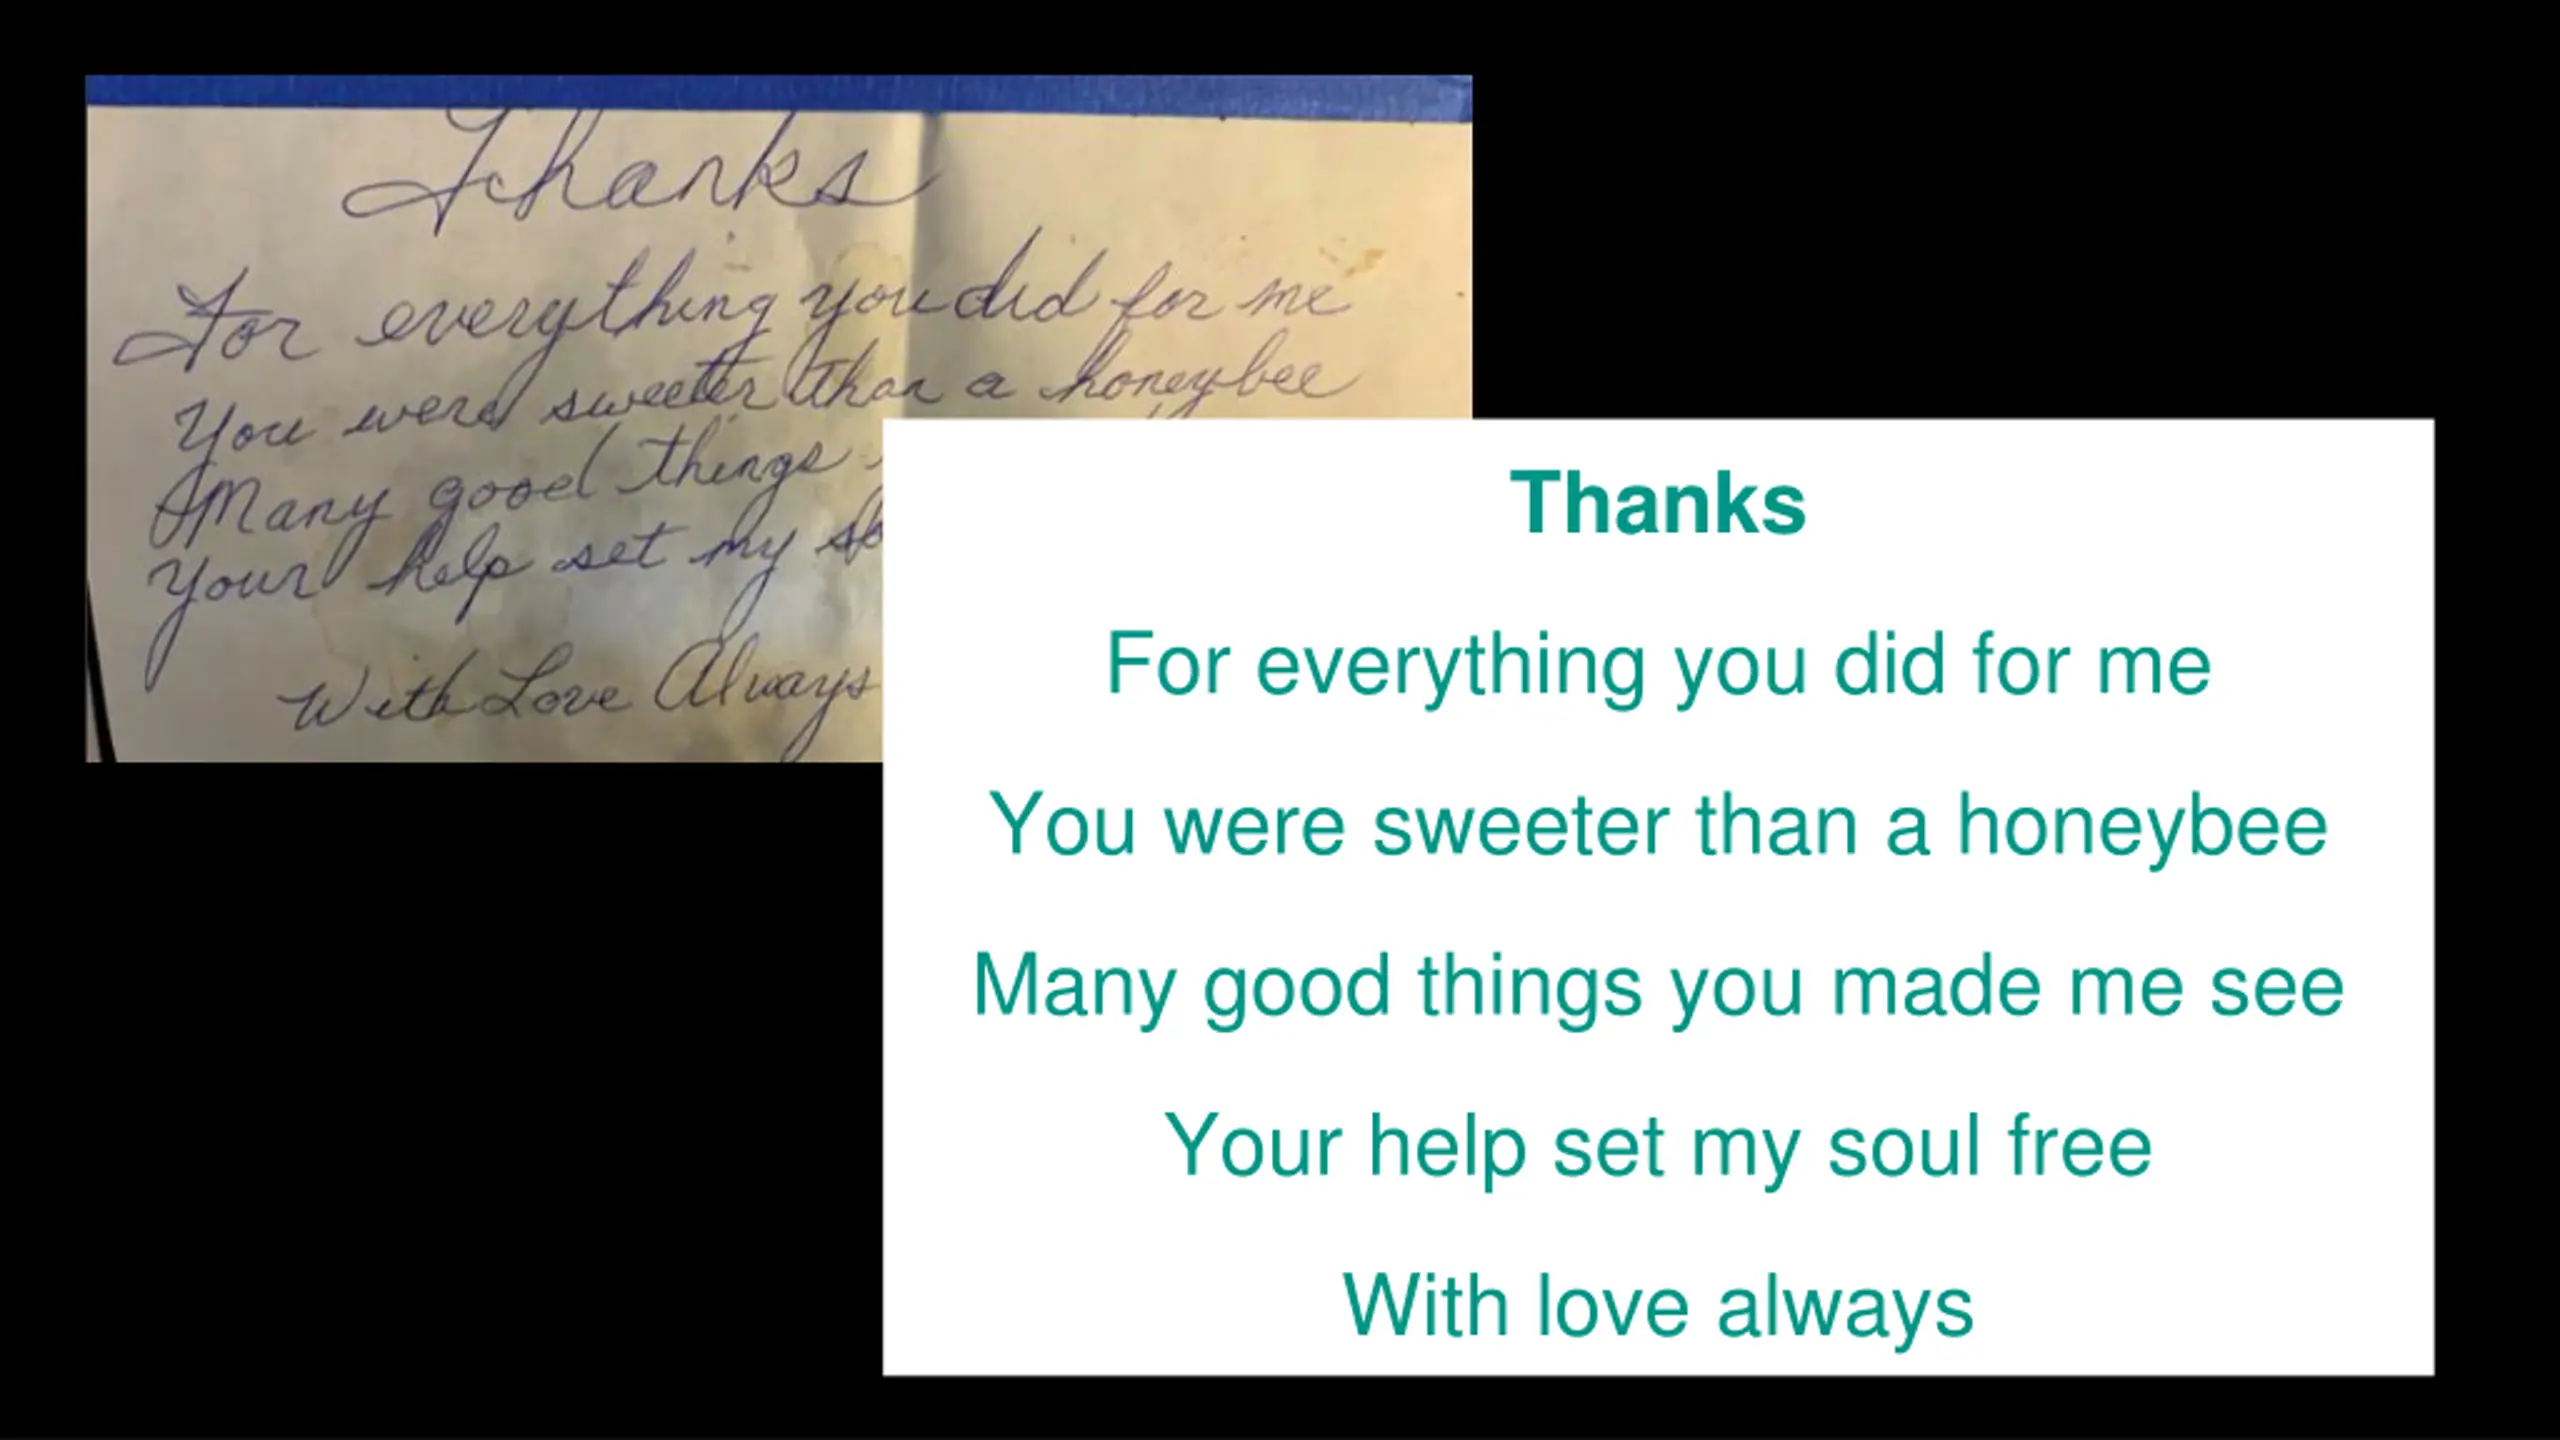 Thanks
For everything you did for me
You were sweeter than a honeybee
Many good things
Your help set my
With Love Always
Thanks
For everything you did for me
You were sweeter than a honeybee
Many good things you made me see
Your help set my soul free
With love always